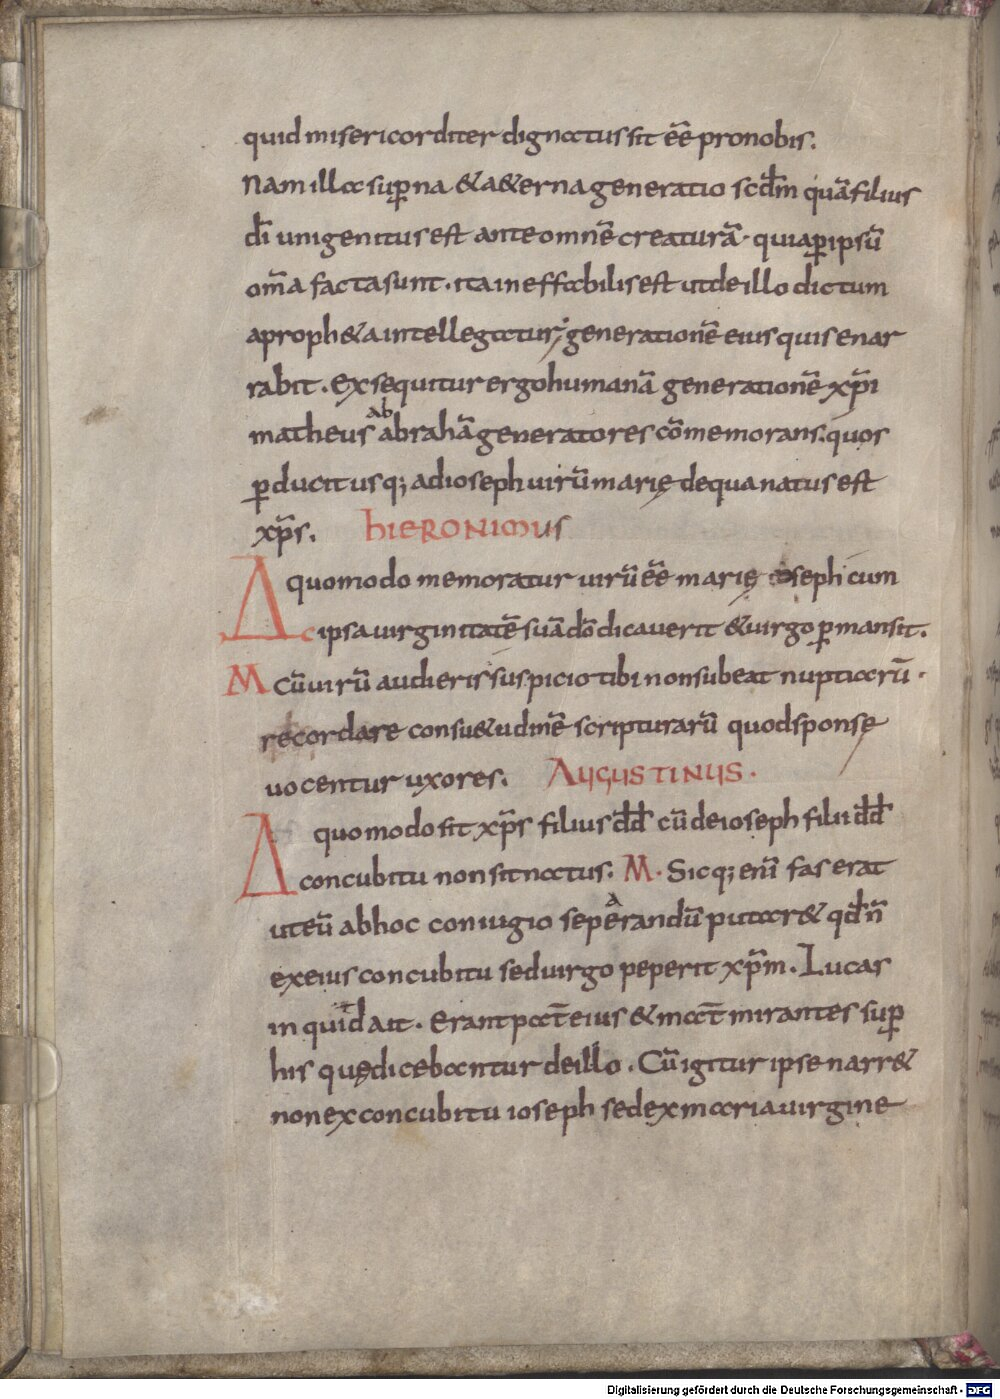 quid misericorditer dignatus sit eē pro nobis.
Nam illa sup̱na & a&erna generatio scd̄m quā filius
dī unigenitus est ante omnē creaturā. quia p̱ ipsū
om̄a facta sunt. ita ineffabilis est ut de illo dictum
a proph&a intellegatur; generationē eius quis enar
rabit. Exsequitur ergo humanā generationē xp̄i
matheus ab abrahā generatores cōmemorans. quos
p̱ducit usq; ad ioseph uirū marię de qua natus est
xp̄s. HIERONIMUS
Δ quomodo memoratur uirū eē marię ioseph cum
c ipsa uirginitatē suā dō dicauerit & uirgo p̱mansit.
M Cū uirū audieris suspicio tibi non subeat nuptiarū.
recordare consu&udinē scripturarū quod sponsę
uocentur uxores. AUGUSTINUS.
Δ quomodo sit xp̄s filius dd̄ cū de ioseph filii dd̄
concubitu non sit natus: M. Sicq; enī fas erat
ut eū ab hoc coniugio seperandū putar& qd̄ n̄
ex eius concubitu sed uirgo peperit xp̄m. Lucas
inquid ait. Erant pat̄ eius & mat̄ mirantes sup̱
his quę dicebantur de illo. Cū igitur ipse narr&
non ex concubitu ioseph sed ex maria uirgine
Digitalisierung gefördert durch die Deutsche Forschungsgemeinschaft - DFG